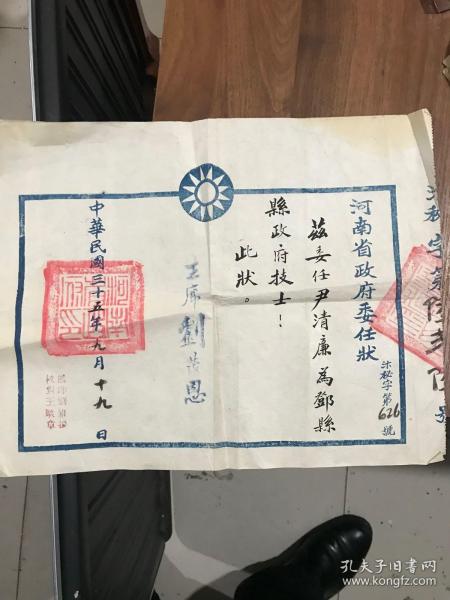 汴秘字第陸貳陸號
河南省政府委任狀
汴秘字第626號
茲委任尹清廉為鄧縣
縣政府技士！
此狀。
主席劉茂恩
中華民國三十五年九月十九日
河南省政府之印
孔夫子旧书网
www.kongfz.com